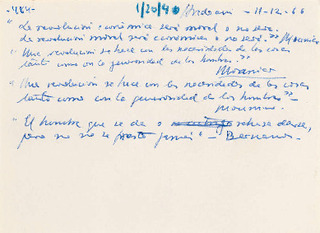 -484-
1/20/4 Burdeos - 11-12-66
"La revolución económica será moral o no será.
La revolución moral será económica o no será." Mounier
"Una revolución se hace con las necesidades de las cosas
tanto como con la generosidad de los hombres."
Mounier
"Una revolución se hace con las necesidades de las cosas
tanto como con la generosidad de los hombres" -
Mounier
"El hombre que se da o rehusa darse,
pero no se presta jamás" - Bernanos -